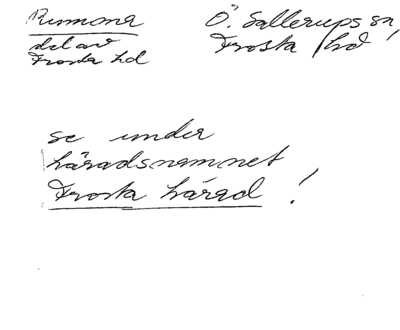 Rumona
del av
Frosta hd
Ö. Sallerups sn
Frosta hd
se under
häradsnamnet
Frosta härad !